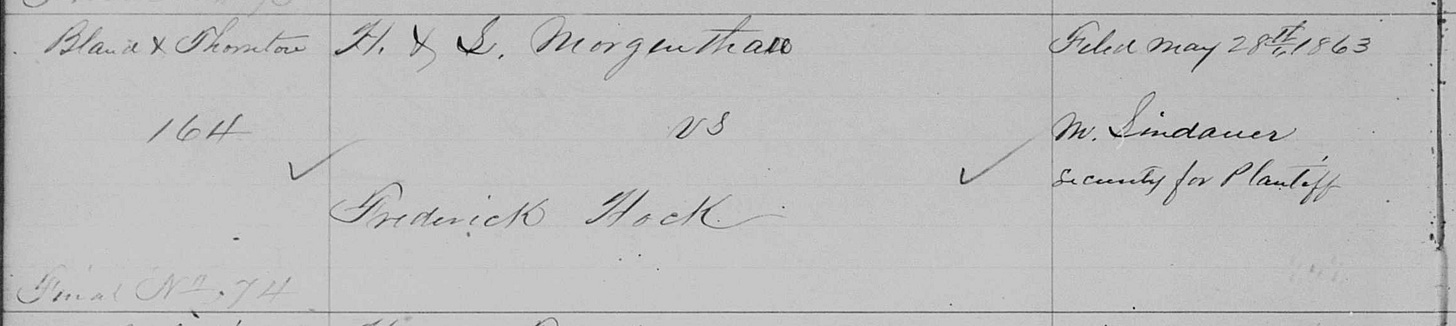 Bland & Thornton
164
Final No. 74
H. & S. Morgenthau
vs
Frederick Hock
Filed May 28th, 1863
M. Lindauer
security for Plantiff